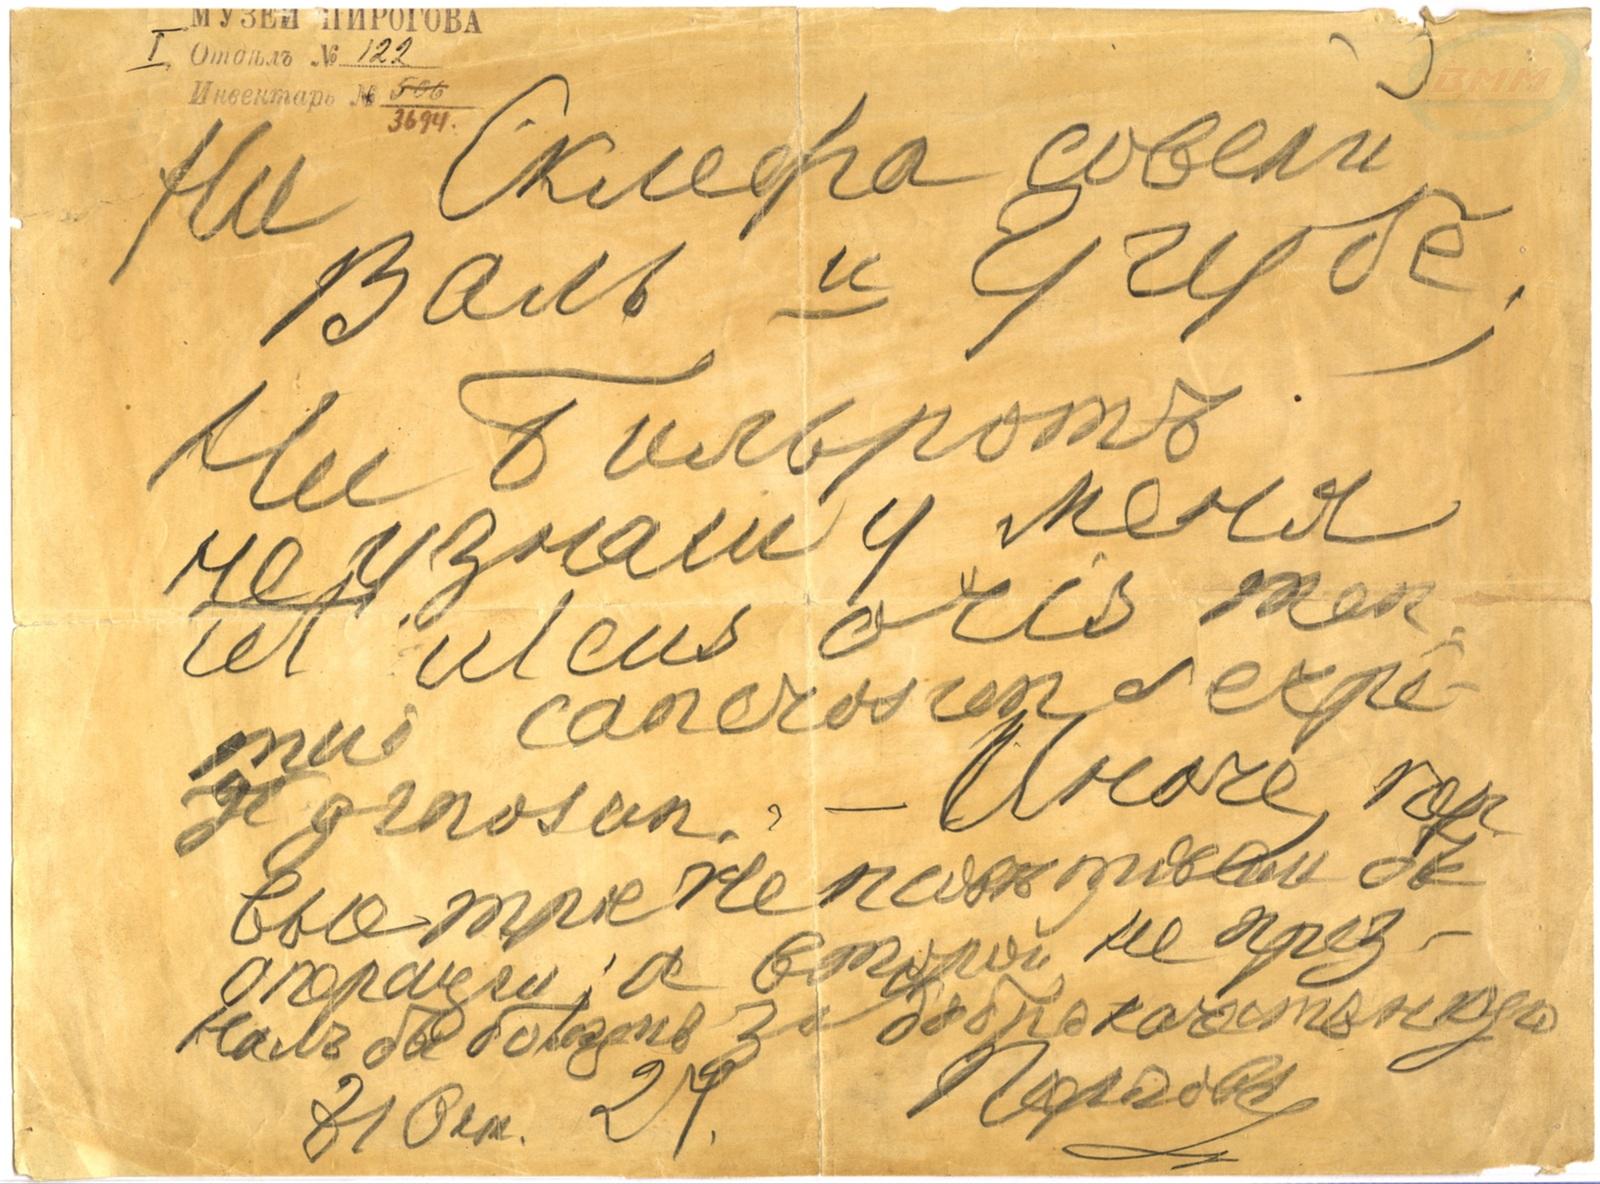 МУЗЕЙ ПИРОГОВА
I Отдѣлъ № 122
Инвентарь № 506
3694.
ВММ
Ни Склефасовскій
Валь и Грубе,
Ни Бильротъ
не узнали у меня
ulcus oris men.
mus cancrosum serpi-
ginosum. — Иначе, пер
вые три не совѣтовали бы
операціи; а второй не приз-
налъ бы болѣзнь за доброкачественную
Пироговъ
Окт. 27.